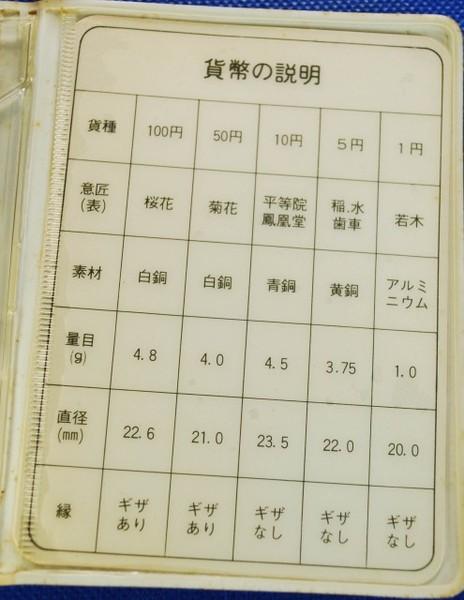 貨幣の説明
貨種 100円 50円 10円 5円 1円
意匠(表) 桜花 菊花 平等院鳳凰堂 稲.水歯車 若木
素材 白銅 白銅 青銅 黄銅 アルミニウム
量目(g) 4.8 4.0 4.5 3.75 1.0
直径(mm) 22.6 21.0 23.5 22.0 20.0
縁 ギザあり ギザあり ギザなし ギザなし ギザなし